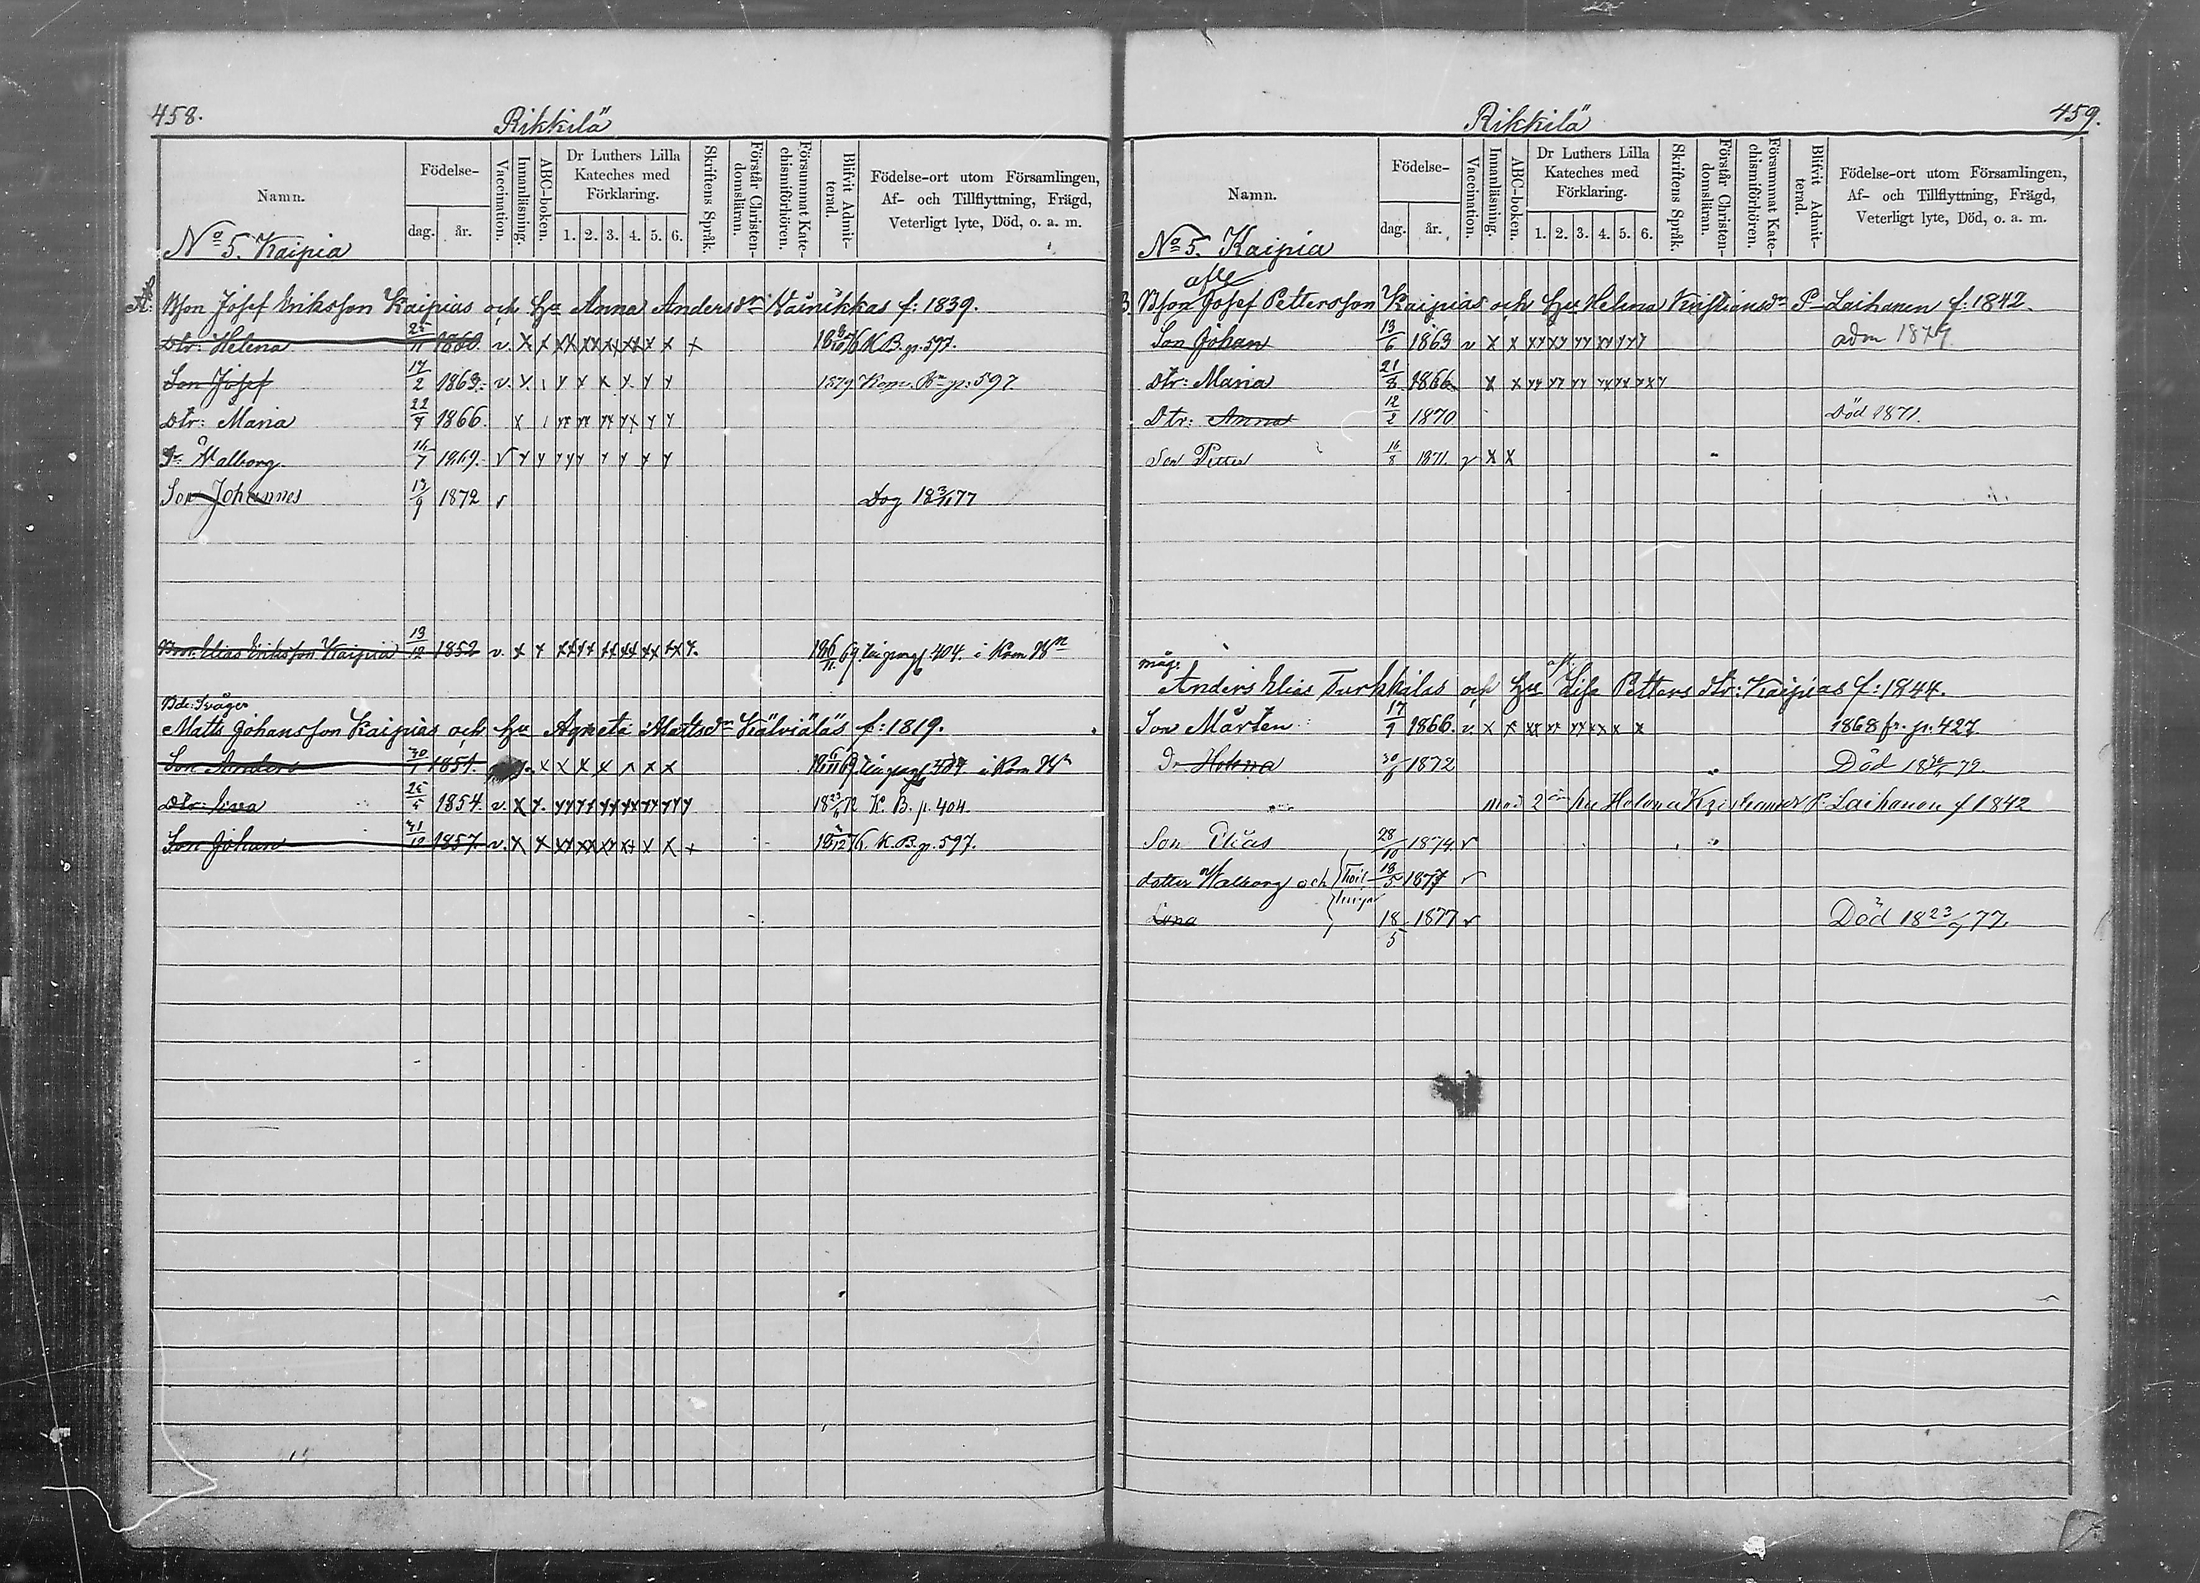 458.
Rikkilä
Namn.
Födelse-
dag.
år.
Vaccination.
Innanläsning.
ABC-boken.
Dr Luthers Lilla
Kateches med
Förklaring.
1. 2. 3. 4. 5. 6.
Skriftens Språk.
Förstår Christen-
domslärans.
Försummat Kate-
chismiförhören.
Blifvit Admit-
terad.
Födelse-ort utom Församlingen,
Af- och Tillflyttning, Frägd,
Veterligt lyte, Död, o. a. m.
No 5. Kaipia
A. Bson Josef Eriksson Kaipias och Hu Anna Andersdr Vainikkas f: 1839.
Dtr: Helena 25/11 1860. v. x x xx xx xx xx x x x K.B. p. 597.
Son Josef 17/2 1863. v. x x x x x x 1879 p: 597
Dtr: Maria 22/9 1866. x
Dr Walborg 16/7 1869. v
Son Johannes 13/9 1872 v Dog 18 3/11 77
Bror: Elias Eriksson Kaipia 13/12 1852 v. x 404. i Kom Bn
Bde: Svåger
Matts Johansson Kaipias och Hu Agneta Mattsdr Kälviäläs f: 1819.
Son Anders 30/1 1851. x x x x x x 404 i Kom Bn
Dtr: Eva 25/5 1854. v. x x. K. B. p. 404.
Son Johan 31/12 1857. v. x x xx xx xx xx x x x K.B. p. 597.
459.
Rikkilä
Namn.
Födelse-
dag.
år.
Vaccination.
Innanläsning.
ABC-boken.
Dr Luthers Lilla
Kateches med
Förklaring.
1. 2. 3. 4. 5. 6.
Skriftens Språk.
Förstår Christen-
domslärans.
Försummat Kate-
chismiförhören.
Blifvit Admit-
terad.
Födelse-ort utom Församlingen,
Af- och Tillflyttning, Frägd,
Veterligt lyte, Död, o. a. m.
No 5. Kaipia
afl
B. Bson Josef Pettersson Kaipias och Hu Helena Kristiansdr P- Laihanen f: 1842.
Son Johan 13/6 1863 v x x adm 1879
Dtr: Maria 21/8 1866 x x
Dtr: Anna 12/2 1870 Död 1871.
Son Petter 16/8 1871. v x x
måg:
Anders Elias Turkkilas och Hu Lisa Petters dtr: Kaipias f: 1844.
Son Mårten 17/9 1866. v. x x 1868 fr. p. 427.
Dr Helena 30/6 1872 Död
med 2 hu Helena P. Laihanen f 1842
Son Elias 28/10 1874 v
dotter Walborg och 18/5 1877 v
Lena 18/5 1877 v Död 18 23/9 77.